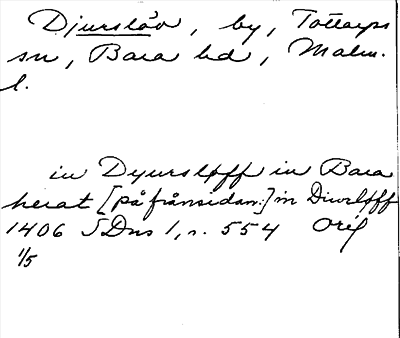 Djurslöv, by, Tottarps
sn, Bara hd, Malm.
l.
in Dyursløff in Bara
herat [på frånsidan:] in Diwrløff
1406 SDns 1, s. 554 Orig
1/5